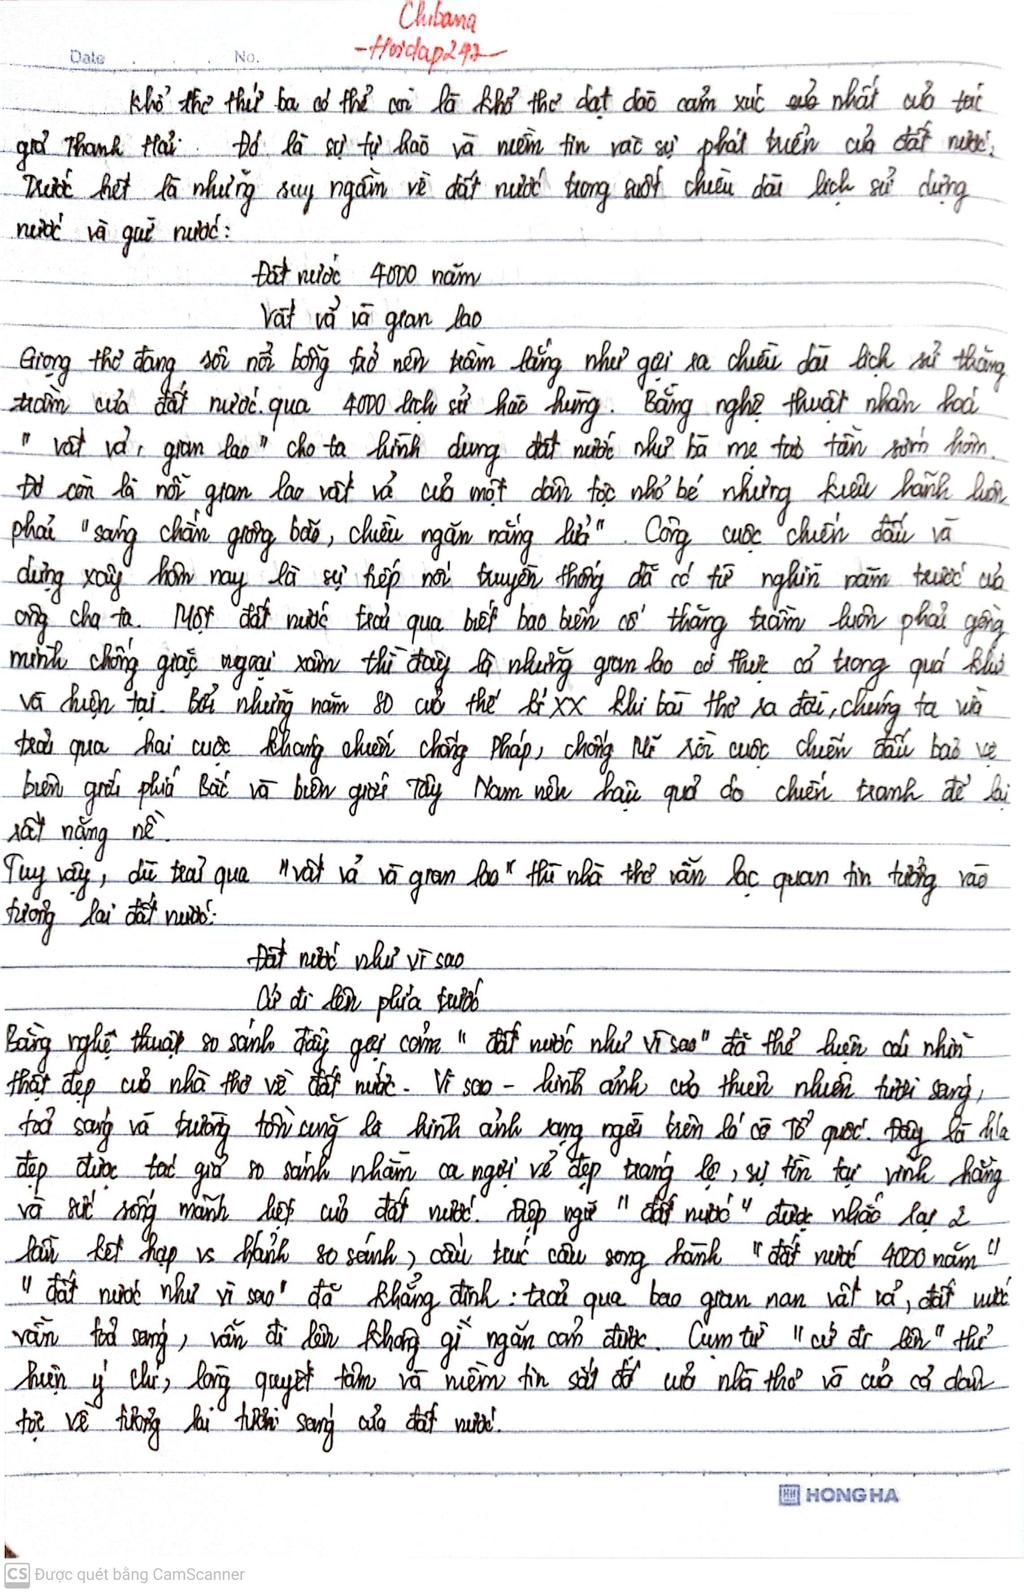 Chibana
-Hoidap247
Date . . . No.
Khổ thơ thứ ba có thể coi là khổ thơ dạt dào cảm xúc nhất của tác
giả Thanh Hải. Đó là sự tự hào và niềm tin vào sự phát triển của đất nước.
Trước hết là những suy ngẫm về đất nước trong suốt chiều dài lịch sử dựng
nước và giữ nước:
Đất nước 4000 năm
Vất vả và gian lao
Giọng thơ đang sôi nổi bỗng trở nên trầm lắng như gợi ra chiều dài lịch sử thăng
trầm của đất nước qua 4000 lịch sử hào hùng. Bằng nghệ thuật nhân hoá
"vất vả, gian lao" cho ta hình dung đất nước như bà mẹ tảo tần sớm hôm.
Đó còn là nỗi gian lao vất vả của một dân tộc nhỏ bé nhưng kiêu hãnh luôn
phải "sáng chắn giông bão, chiều ngăn nắng lửa". Công cuộc chiến đấu và
dựng xây hôm nay là sự tiếp nối truyền thống đã có từ nghìn năm trước của
ông cha ta. Một đất nước trải qua biết bao biến cố thăng trầm luôn phải gồng
mình chống giặc ngoại xâm thì đây là những gian lao có thực cả trong quá khứ
và hiện tại. Bởi những năm 80 của thế kỉ XX khi bài thơ ra đời, chúng ta vừa
trải qua hai cuộc kháng chiến chống Pháp, chống Mĩ rồi cuộc chiến đấu bảo vệ
biên giới phía Bắc và biên giới Tây Nam nên hậu quả do chiến tranh để lại
rất nặng nề.
Tuy vậy, dù trải qua "vất vả và gian lao" thì nhà thơ vẫn lạc quan tin tưởng vào
tương lai đất nước:
Đất nước như vì sao
Cứ đi lên phía trước
Bằng nghệ thuật so sánh đầy gợi cảm "đất nước như vì sao" đã thể hiện cái nhìn
thật đẹp của nhà thơ về đất nước. Vì sao - hình ảnh của thiên nhiên tươi sáng,
toả sáng và trường tồn cũng là hình ảnh rạng ngời trên lá cờ Tổ quốc. Đây là h/a
đẹp được tác giả so sánh nhằm ca ngợi vẻ đẹp tráng lệ, sự tồn tại vĩnh hằng
và sức sống mãnh liệt của đất nước. Điệp ngữ "đất nước" được nhắc lại 2
lần kết hợp vs h/ảnh so sánh, cấu trúc câu song hành "đất nước 4000 năm"
"đất nước như vì sao" đã khẳng định: trải qua bao gian nan vất vả, đất nước
vẫn toả sáng, vẫn đi lên không gì ngăn cản được. Cụm từ "cứ đi lên" thể
hiện ý chí, lòng quyết tâm và niềm tin sắt đá của nhà thơ và của cả dân
tộc về tương lai tươi sáng của đất nước.
HONG HA
CS Được quét bằng CamScanner